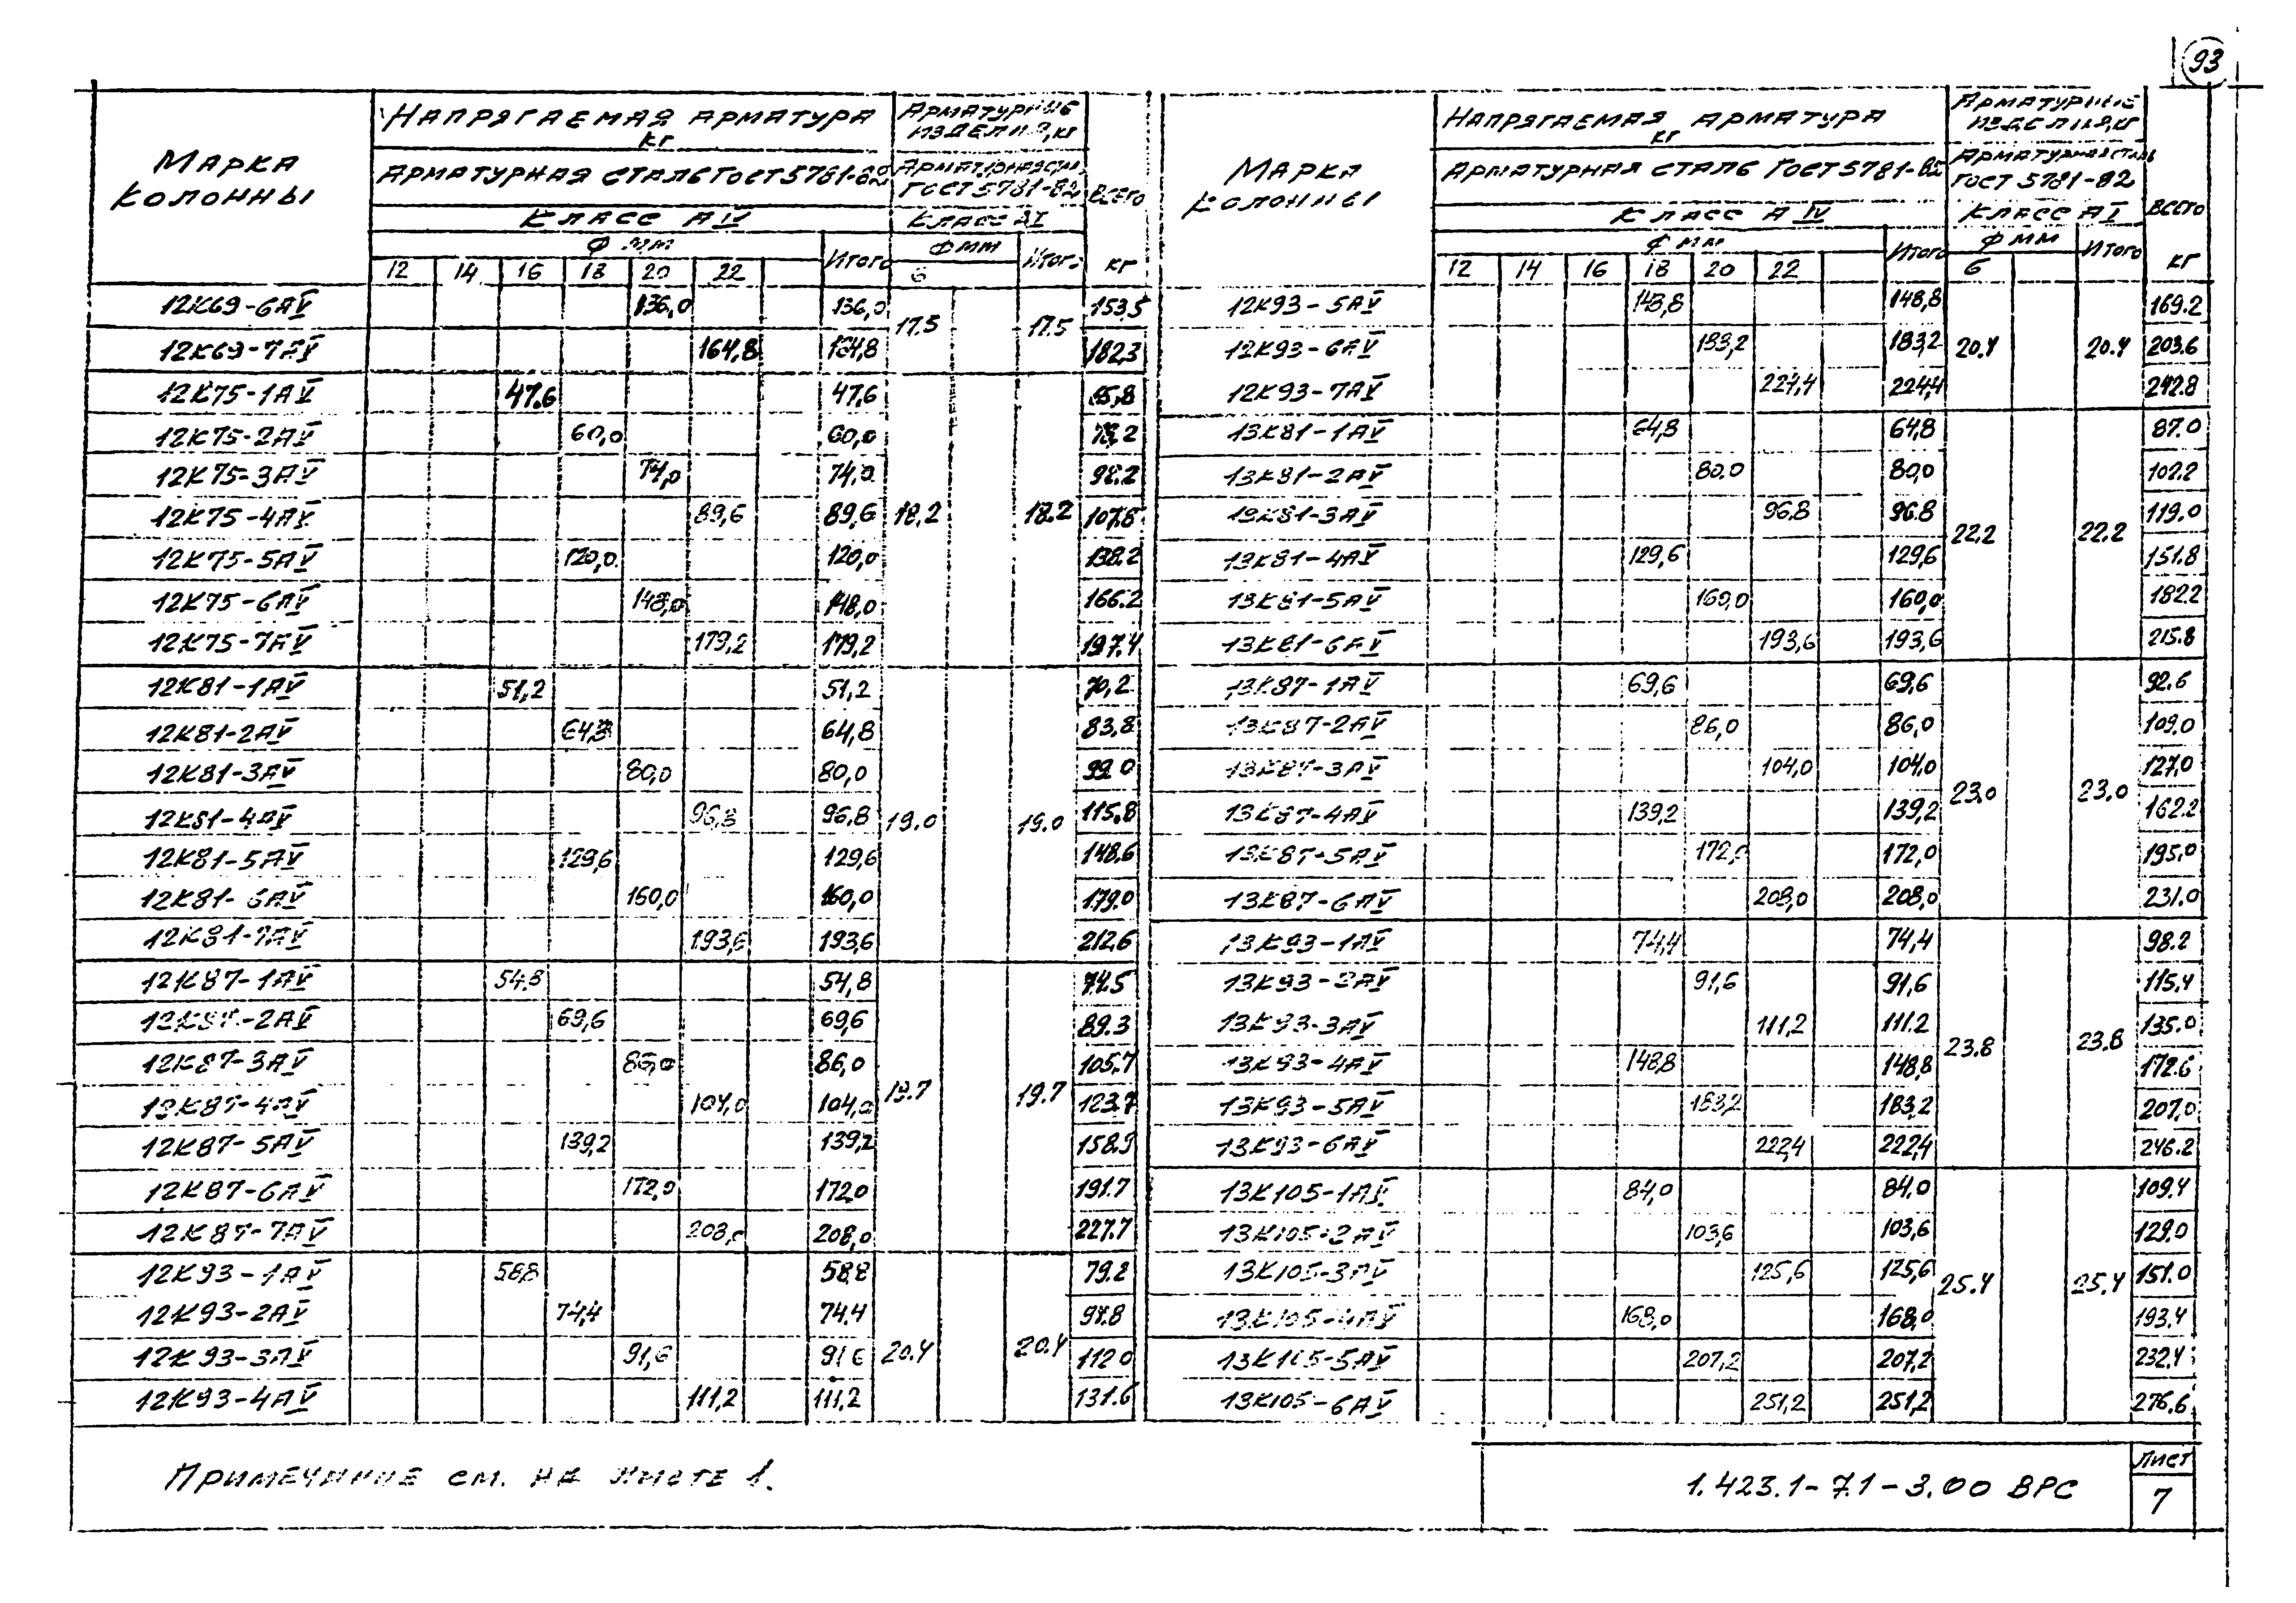 93
МАРКА КОЛОННЫ | НАПРЯГАЕМАЯ АРМАТУРА КГ | АРМАТУРНЫЕ ИЗДЕЛИЯ, КГ | ВСЕГО КГ
АРМАТУРНАЯ СТАЛЬ ГОСТ 5781-82 | АРМАТУРНАЯ СТАЛЬ ГОСТ 5781-82
КЛАСС А IV | КЛАСС А I
Ф ММ | ИТОГО | Ф ММ | ИТОГО
12 | 14 | 16 | 18 | 20 | 22 | 6
12К69-6АV | 136,0 | 136,0 | 17.5 | 17.5 | 153,5
12К69-7АV | 164,8 | 164,8 | 182.3
12К75-1АV | 47.6 | 47,6 | 65,8
12К75-2АV | 60,0 | 60,0 | 78,2
12К75-3АV | 74,0 | 74,0 | 92.2
12К75-4АV | 89,6 | 89,6 | 18,2 | 18.2 | 107.8
12К75-5АV | 120,0 | 120,0 | 138.2
12К75-6АV | 148,0 | 148,0 | 166.2
12К75-7АV | 179,2 | 179,2 | 197.4
12К81-1АV | 51,2 | 51,2 | 70,2
12К81-2АV | 64,8 | 64,8 | 83,8
12К81-3АV | 80,0 | 80,0 | 99.0
12К81-4АV | 96,8 | 96,8 | 19.0 | 19.0 | 115,8
12К81-5АV | 129,6 | 129,6 | 148.6
12К81-6АV | 160,0 | 160,0 | 179.0
12К81-7АV | 193,6 | 193,6 | 212.6
12К87-1АV | 54,8 | 54,8 | 74.5
12К87-2АV | 69,6 | 69,6 | 89.3
12К87-3АV | 86,0 | 86,0 | 105.7
12К87-4АV | 104,0 | 104,0 | 19.7 | 19.7 | 123.7
12К87-5АV | 139,2 | 139,2 | 158.9
12К87-6АV | 172,0 | 172,0 | 191.7
12К87-7АV | 208,0 | 208,0 | 227.7
12К93-1АV | 58,8 | 58,8 | 79.2
12К93-2АV | 74,4 | 74,4 | 94.8
12К93-3АV | 91,6 | 91 6 | 20.4 | 20.4 | 112 0
12К93-4АV | 111,2 | 111,2 | 131.6
МАРКА КОЛОННЫ | НАПРЯГАЕМАЯ АРМАТУРА КГ | АРМАТУРНЫЕ ИЗДЕЛИЯ, КГ | ВСЕГО КГ
АРМАТУРНАЯ СТАЛЬ ГОСТ 5781-82 | АРМАТУРНАЯ СТАЛЬ ГОСТ 5781-82
КЛАСС А IV | КЛАСС А I
Ф ММ | ИТОГО | Ф ММ | ИТОГО
12 | 14 | 16 | 18 | 20 | 22 | 6
12К93-5АV | 148,8 | 148,8 | 169.2
12К93-6АV | 183,2 | 183,2 | 20.4 | 20.4 | 203.6
12К93-7АV | 224,4 | 224,4 | 242.8
13К81-1АV | 64,8 | 64,8 | 87.0
13К81-2АV | 80.0 | 80,0 | 102.2
13К81-3АV | 96,8 | 96.8 | 119.0
13К81-4АV | 129,6 | 129,6 | 22.2 | 22.2 | 151.8
13К81-5АV | 160,0 | 160,0 | 182.2
13К81-6АV | 193,6 | 193,6 | 215.8
13К87-1АV | 69,6 | 69,6 | 92.6
13К87-2АV | 86,0 | 86,0 | 109.0
13К87-3АV | 104,0 | 104,0 | 127.0
13К87-4АV | 139,2 | 139,2 | 23.0 | 23.0 | 162.2
13К87-5АV | 172,0 | 172,0 | 195.0
13К87-6АV | 208,0 | 208,0 | 231.0
13К93-1АV | 74,4 | 74,4 | 98.2
13К93-2АV | 91,6 | 91,6 | 115,4
13К93-3АV | 111,2 | 111.2 | 135.0
13К93-4АV | 148,8 | 148,8 | 23.8 | 23.8 | 172.6
13К93-5АV | 183,2 | 183,2 | 207.0
13К93-6АV | 222,4 | 222,4 | 246.2
13К105-1АV | 84,0 | 84,0 | 109.4
13К105-2АV | 103,6 | 103,6 | 129.0
13К105-3АV | 125,6 | 125,6 | 25.4 | 25.4 | 151.0
13К105-4АV | 168,0 | 168,0 | 193.4
13К105-5АV | 207,2 | 207,2 | 232.4
13К105-6АV | 251,2 | 251,2 | 276.6
ПРИМЕЧАНИЕ СМ. НА ЛИСТЕ 1.
1.423.1-7.1-3.00 ВРС
ЛИСТ
7